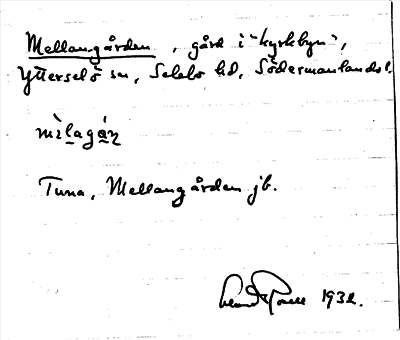 Mellangården, gård i "kyrkbyn",
Ytterselö sn, Selebo hd, Södermanlands l.
Tuna, Mellangården jb.
1932.